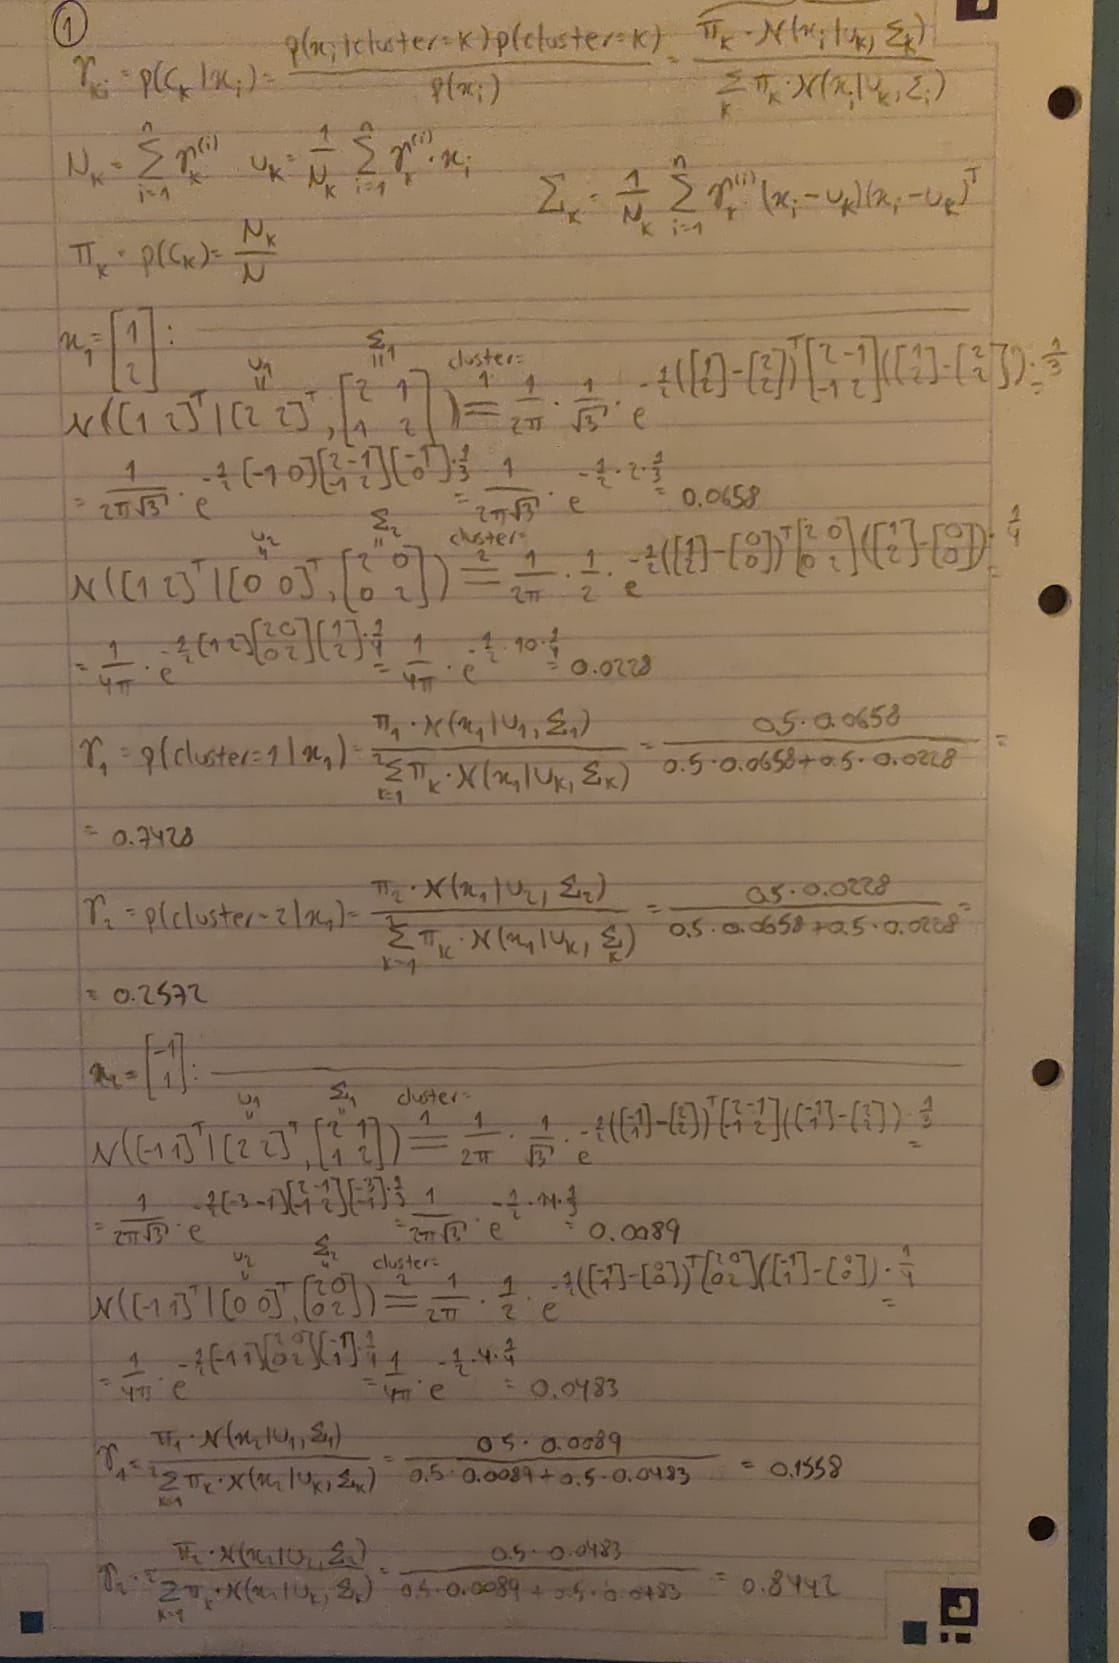 1
γ_ki = p(C_k|x_i) = p(x_i|cluster=k)·p(cluster=k) / p(x_i) = π_k · N(x_i|u_k, Σ_k) / Σ_k π_k · N(x_i|u_k, Σ_i)
N_k = Σ_{i=1}^n γ_k^(i)   u_k = 1/N_k Σ_{i=1}^n γ_k^(i) · x_i   Σ_k = 1/N_k Σ_{i=1}^n γ_k^(i) (x_i - u_k)(x_i - u_k)^T
π_k = p(C_k) = N_k/N
x_1 = [1 2]:
N([1 2]^T | [2 2]^T, [2 1; 1 2]) = (cluster=1) 1/2π · 1/√3 · e^{-1/2([1 2] - [2 2])^T [2 -1; -1 2]([1 2] - [2 2]) · 1/3} =
= 1/(2π√3) · e^{-1/2 [-1 0][2 -1; -1 2][-1 0] · 1/3} = 1/(2π√3) · e^{-1/2 · 2 · 1/3} = 0.0658
N([1 2]^T | [0 0]^T, [2 0; 0 2]) = (cluster=2) 1/2π · 1/2 · e^{-1/2([1 2] - [0 0])^T [2 0; 0 2]([1 2] - [0 0]) · 1/4} =
= 1/4π · e^{-1/2 [1 2][2 0; 0 2][1 2] · 1/4} = 1/4π · e^{-1/2 · 10 · 1/4} = 0.0228
γ_1 = p(cluster=1|x_1) = π_1 · N(x_1|u_1, Σ_1) / Σ_{k=1}^2 π_k · N(x_1|u_k, Σ_k) = 0.5 · 0.0658 / 0.5 · 0.0658 + 0.5 · 0.0228 =
= 0.7428
γ_2 = p(cluster=2|x_1) = π_2 · N(x_1|u_2, Σ_2) / Σ_{k=1}^2 π_k · N(x_1|u_k, Σ_k) = 0.5 · 0.0228 / 0.5 · 0.0658 + 0.5 · 0.0228 =
= 0.2572
x_2 = [-1 1]:
N([-1 1]^T | [2 2]^T, [2 1; 1 2]) = (cluster=1) 1/2π · 1/√3 · e^{-1/2([-1 1] - [2 2])^T [2 -1; -1 2]([-1 1] - [2 2]) · 1/3} =
= 1/(2π√3) · e^{-1/2 [-3 -1][2 -1; -1 2][-3 -1] · 1/3} = 1/(2π√3) · e^{-1/2 · 14 · 1/3} = 0.0089
N([-1 1]^T | [0 0]^T, [2 0; 0 2]) = (cluster=2) 1/2π · 1/2 · e^{-1/2([-1 1] - [0 0])^T [2 0; 0 2]([-1 1] - [0 0]) · 1/4} =
= 1/4π · e^{-1/2 [-1 1][2 0; 0 2][-1 1] · 1/4} = 1/4π · e^{-1/2 · 4 · 1/4} = 0.0483
γ_1 = π_1 · N(x_2|u_1, Σ_1) / Σ_{k=1}^2 π_k · N(x_2|u_k, Σ_k) = 0.5 · 0.0089 / 0.5 · 0.0089 + 0.5 · 0.0483 = 0.1558
γ_2 = π_2 · N(x_2|u_2, Σ_2) / Σ_{k=1}^2 π_k · N(x_2|u_k, Σ_k) = 0.5 · 0.0483 / 0.5 · 0.0089 + 0.5 · 0.0483 = 0.8442